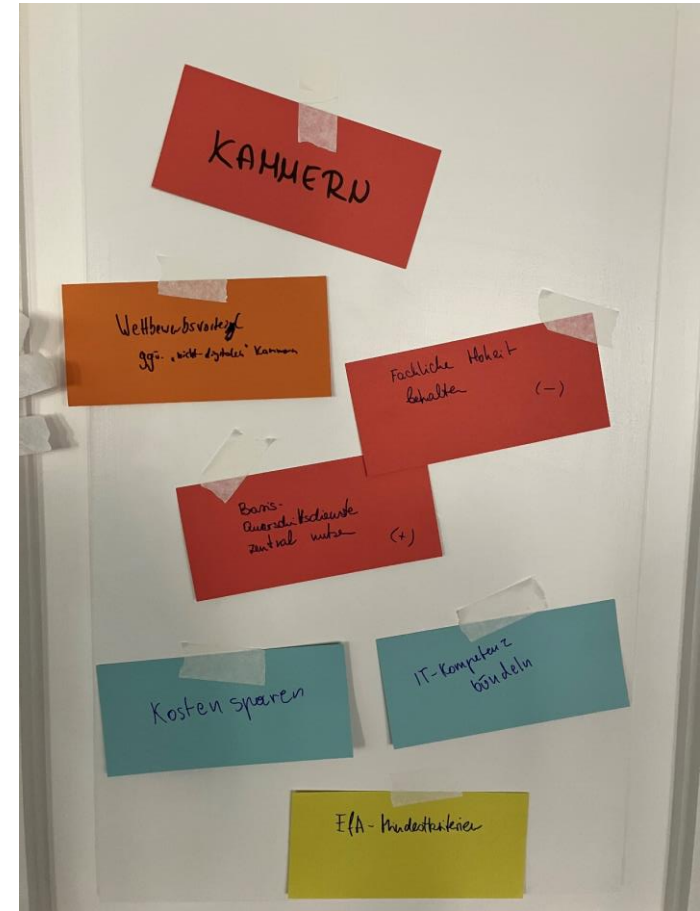 KAMMERN
Wettbewerbsvorteil
ggü. "nicht-digitalen" Kammern
Fachliche Hoheit
behalten (-)
Basis-
Querschnittsdienste
zentral nutzen (+)
Kosten sparen
IT-Kompetenz
bündeln
EfA-Mindestkriterien